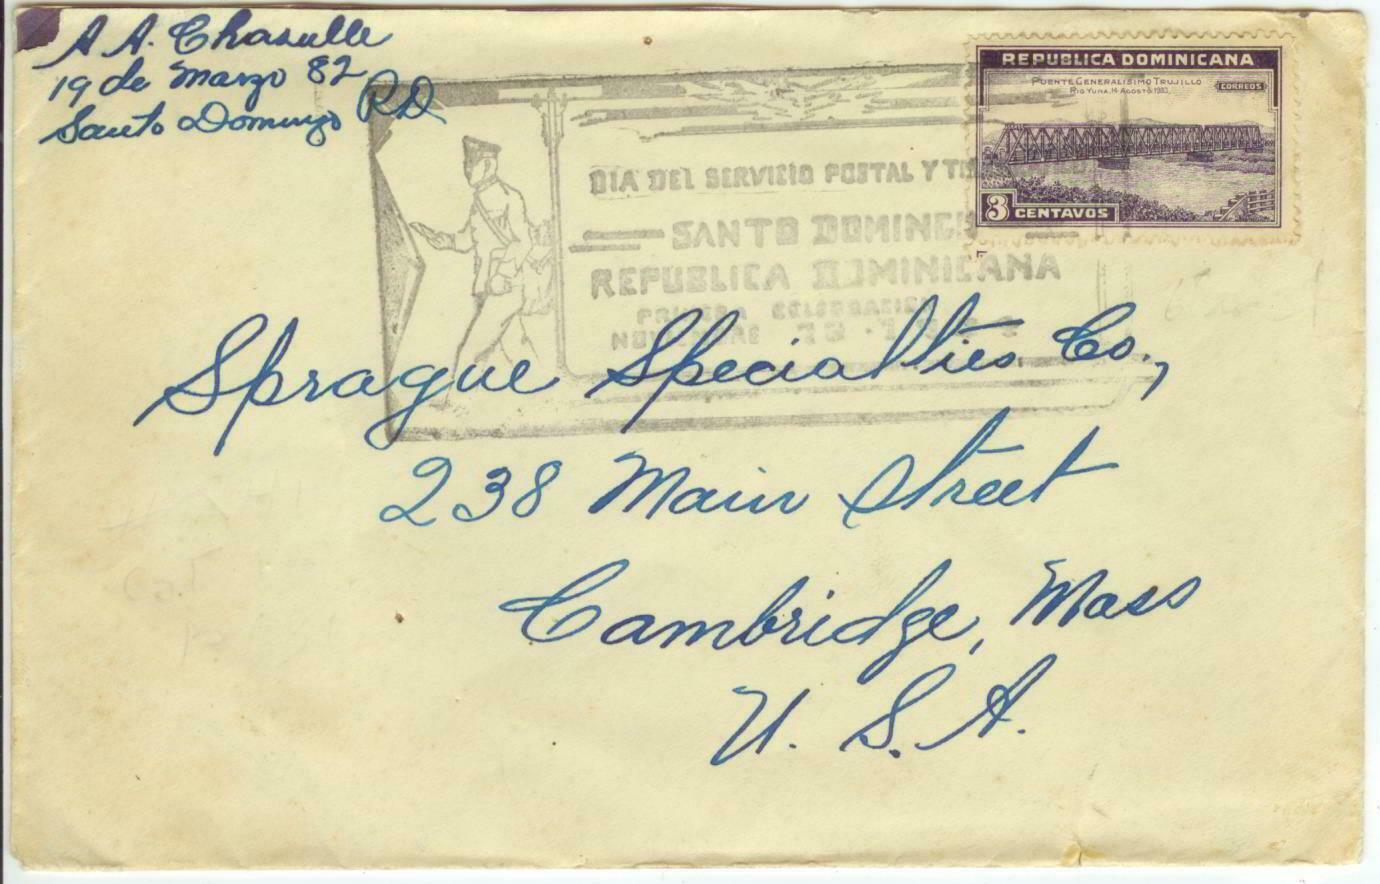 A A. Chasulle
19 de Marzo 82
Santo Domingo RD
REPUBLICA DOMINICANA
PUENTE GENERALISIMO TRUJILLO
RIO YUNA. 14 AGOSTO 1933.
CORREOS
3 CENTAVOS
DIA DEL SERVICIO POSTAL Y
SANTO DOMINGO
REPUBLICA DOMINICANA
PRIMERA CELEBRACION
NOVIEMBRE
Sprague Specialties Co.,
238 Main Street
Cambridge, Mass
U. S. A.